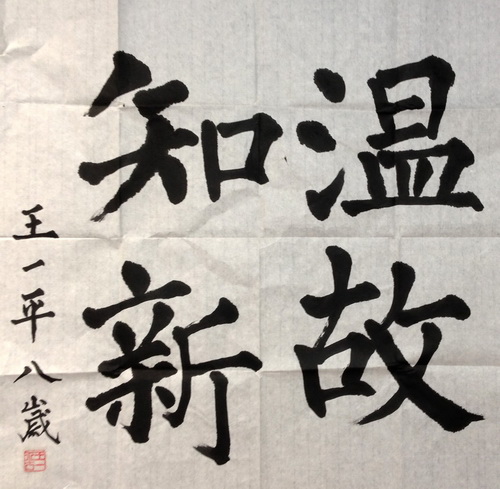 温故
知新
王一平八歲